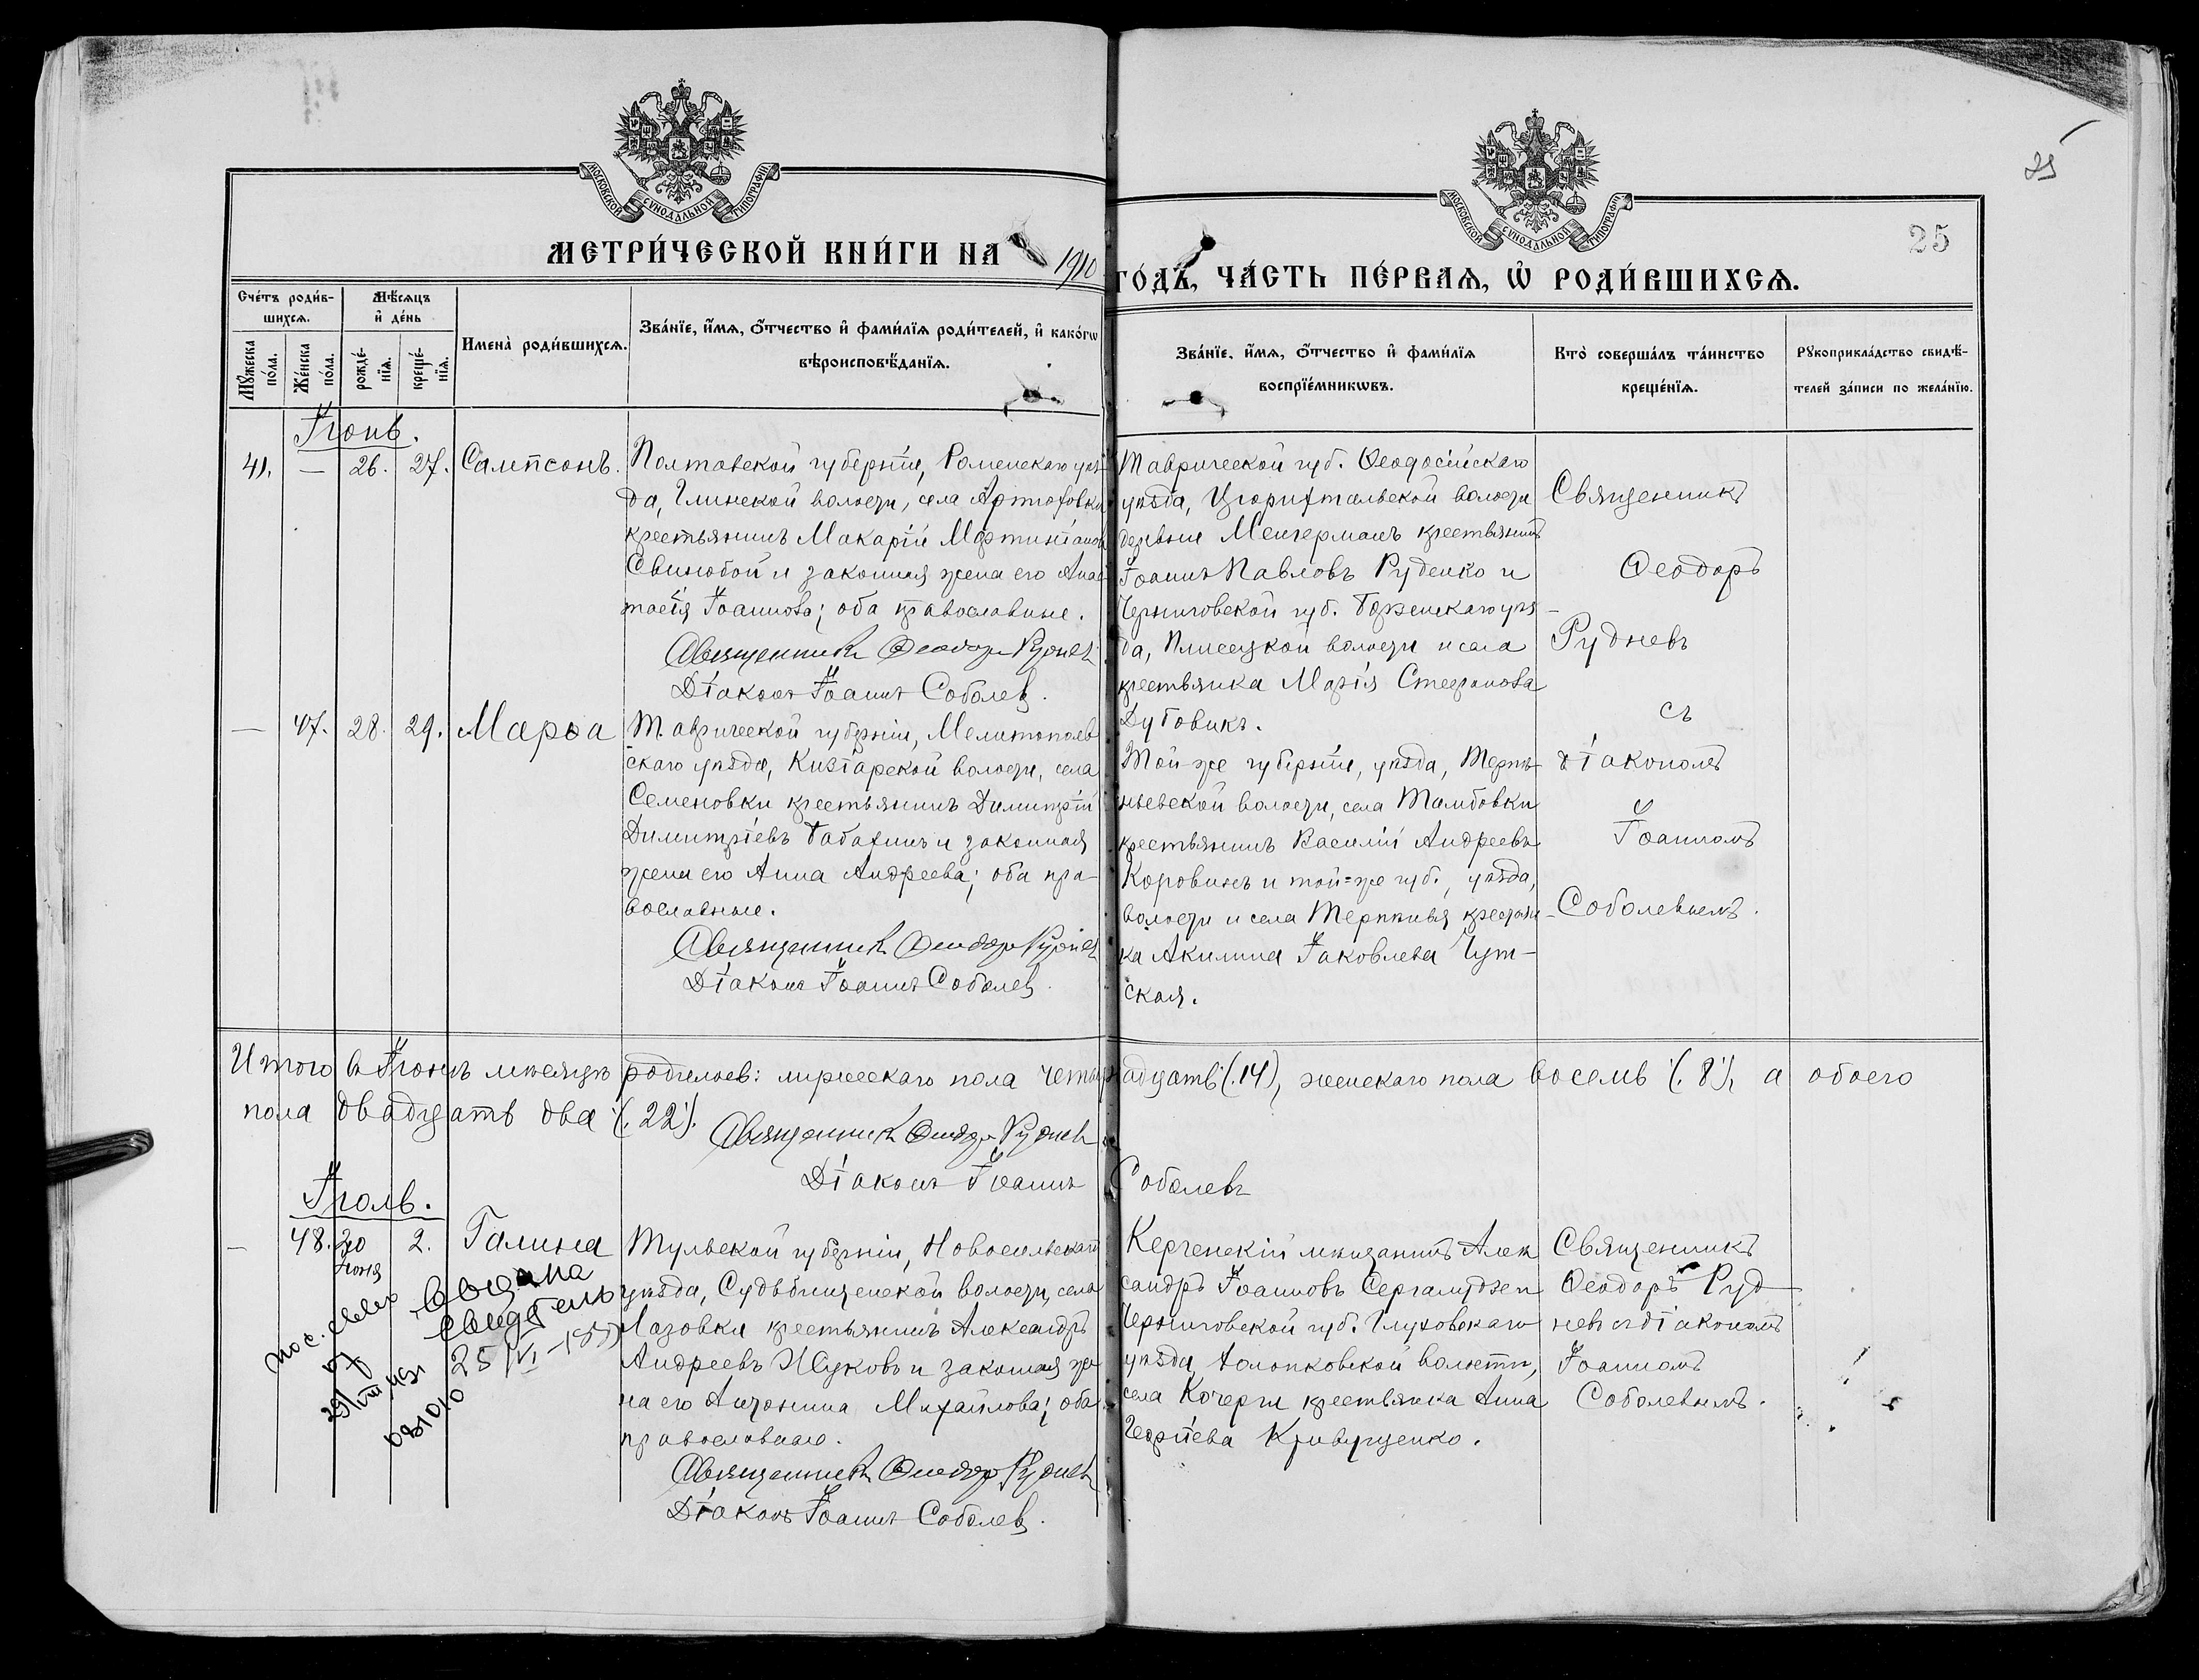 25
25
МОСКОВСКОЙ СѴНОДАЛЬНОЙ ТИПОГРАФІИ
МОСКОВСКОЙ СѴНОДАЛЬНОЙ ТИПОГРАФІИ
МЕТРИ́ЧЕСКОЙ КНИ́ГИ НА 1910 ГО́ДЪ, ЧА́СТЬ ПЕ́РВАѦ, Ѡ҆ РОДИ́ВШИХСѦ.
Сче́тъ роди́в-
шихсѧ.
Мѣ́сѧцъ
и҆ де́нь
Мꙋ́жеска по́ла.
Же́нска по́ла.
рожде́-
нїѧ.
креще́-
нїѧ.
Имена̀ роди́вшихсѧ.
Зва́нїе, и҆́мѧ, ѻ҆́тчество и҆ фами́лїѧ роди́телей, и҆ како́гѡ
вѣроисповѣ́данїѧ.
Зва́нїе, и҆́мѧ, ѻ҆́тчество и҆ фами́лїѧ
воспрїе́мникѡвъ.
Кто̀ соверша́лъ та́инство
креще́нїѧ.
Рꙋкоприкла́дство свидѣ́-
телей за́писи по жела́нїю.
Іюнь.
41. — 26. 27. Сампсонъ.
Полтавской губерніи, Роменскаго уѣз-
да, Глинской волости, села
крестьянинъ Макарій
и законная жена его Анас-
тасія Іоаннова; оба православные.
Священникъ Ѳеодоръ Рудневъ
Діаконъ Іоаннъ Соболевъ.
Таврической губ. Ѳеодосійскаго
уѣзда, Цюрихтальской волости
деревни крестьянинъ
Іоаннъ Павловъ Руденко и
Черниговской губ. Борзенскаго уѣз-
да, Плисецкой волости и села
крестьянка Марія Стефанова
Дубовикъ.
Священникъ
Ѳеодоръ
Рудневъ
съ
діакономъ
Іоанномъ
Соболевымъ.
— 47. 28. 29. Марѳа
Таврической губерніи, Мелитополь-
скаго уѣзда, Кизіярской волости, села
Семеновки крестьянинъ Димитрій
Димитріевъ и законная
жена его Анна Андреева; оба пра-
вославные.
Священникъ Ѳеодоръ Рудневъ
Діаконъ Іоаннъ Соболевъ.
Той-же губерніи, уѣзда, Терпѣ-
ньевской волости, села Тамбовки
крестьянинъ Василій Андреевъ
Коровинъ и той=же губ., уѣзда,
волости и села Терпѣнья крестьян-
ка Акилина Іаковлева
ская.
Итого въ Іюнѣ мѣсяцѣ родилось: мужескаго пола четырнадцать (14), женскаго пола восемь (8), а обоего
пола двадцать два (22).
Священникъ Ѳеодоръ Рудневъ
Діаконъ Іоаннъ Соболевъ
Іюль.
— 48. 30 Іюня 2. Галина
Тульской губерніи, Новосильскаго
уѣзда, Судьбищенской волости, села
Лазовки крестьянинъ Александръ
Андреевъ Жуковъ и законная же-
на его Антонина Михайлова; оба
православные.
Священникъ Ѳеодоръ Рудневъ
Діаконъ Іоаннъ Соболевъ.
Керченскій мѣщанинъ Алек-
сандръ Іоанновъ и
Черниговской губ. Глуховскаго
уѣзда, волости,
села Кочерги крестьянка Анна
Георгіева
Священникъ
Ѳеодоръ Руд-
невъ съ діакономъ
Іоанномъ
Соболевымъ.